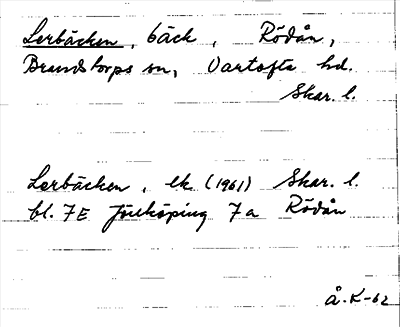 Lerbäcken, bäck, Rödån,
Brandstorps sn, Vartofta hd.
Skar. l.
Lerbäcken, ek. (1961) Skar. l.
bl. 7E Jönköping 7a Rödån
Å.K-62